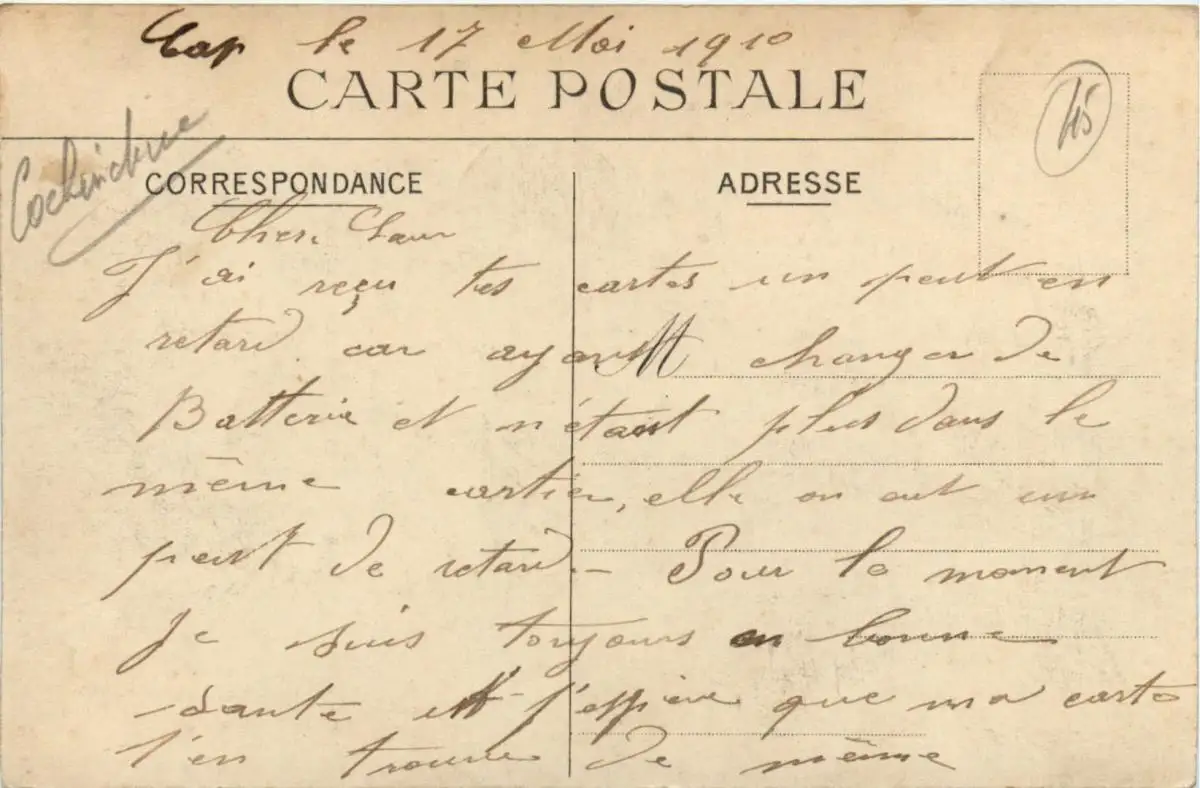 Cap le 17 Mai 1910
CARTE POSTALE
45
Cochinchine
CORRESPONDANCE
ADRESSE
Cher
J'ai reçu tes cartes un peut en
retard car ayant changer de
Batterie et n'étant plus dans le
même cartier, elle on eut un
peut de retard – Pour le moment
Je suis toujours en bonne
santé et j'espière que ma carte
t'en trouve de même
M